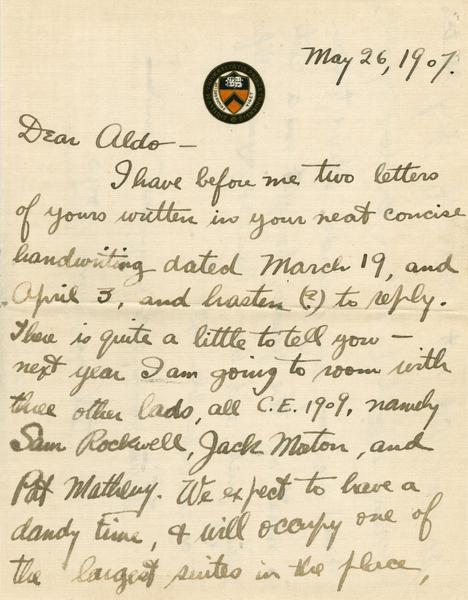 May 26, 1907.
Dear Aldo —
I have before me two letters
of yours written in your neat concise
handwriting dated March 19, and
April 3, and hasten (?) to reply.
There is quite a little to tell you —
next year I am going to room with
three other lads, all C.E. 1909, namely
Sam Rockwell, Jack Moton, and
Pat Matheny. We expect to have a
dandy time, & will occupy one of
the largest suites in the place,